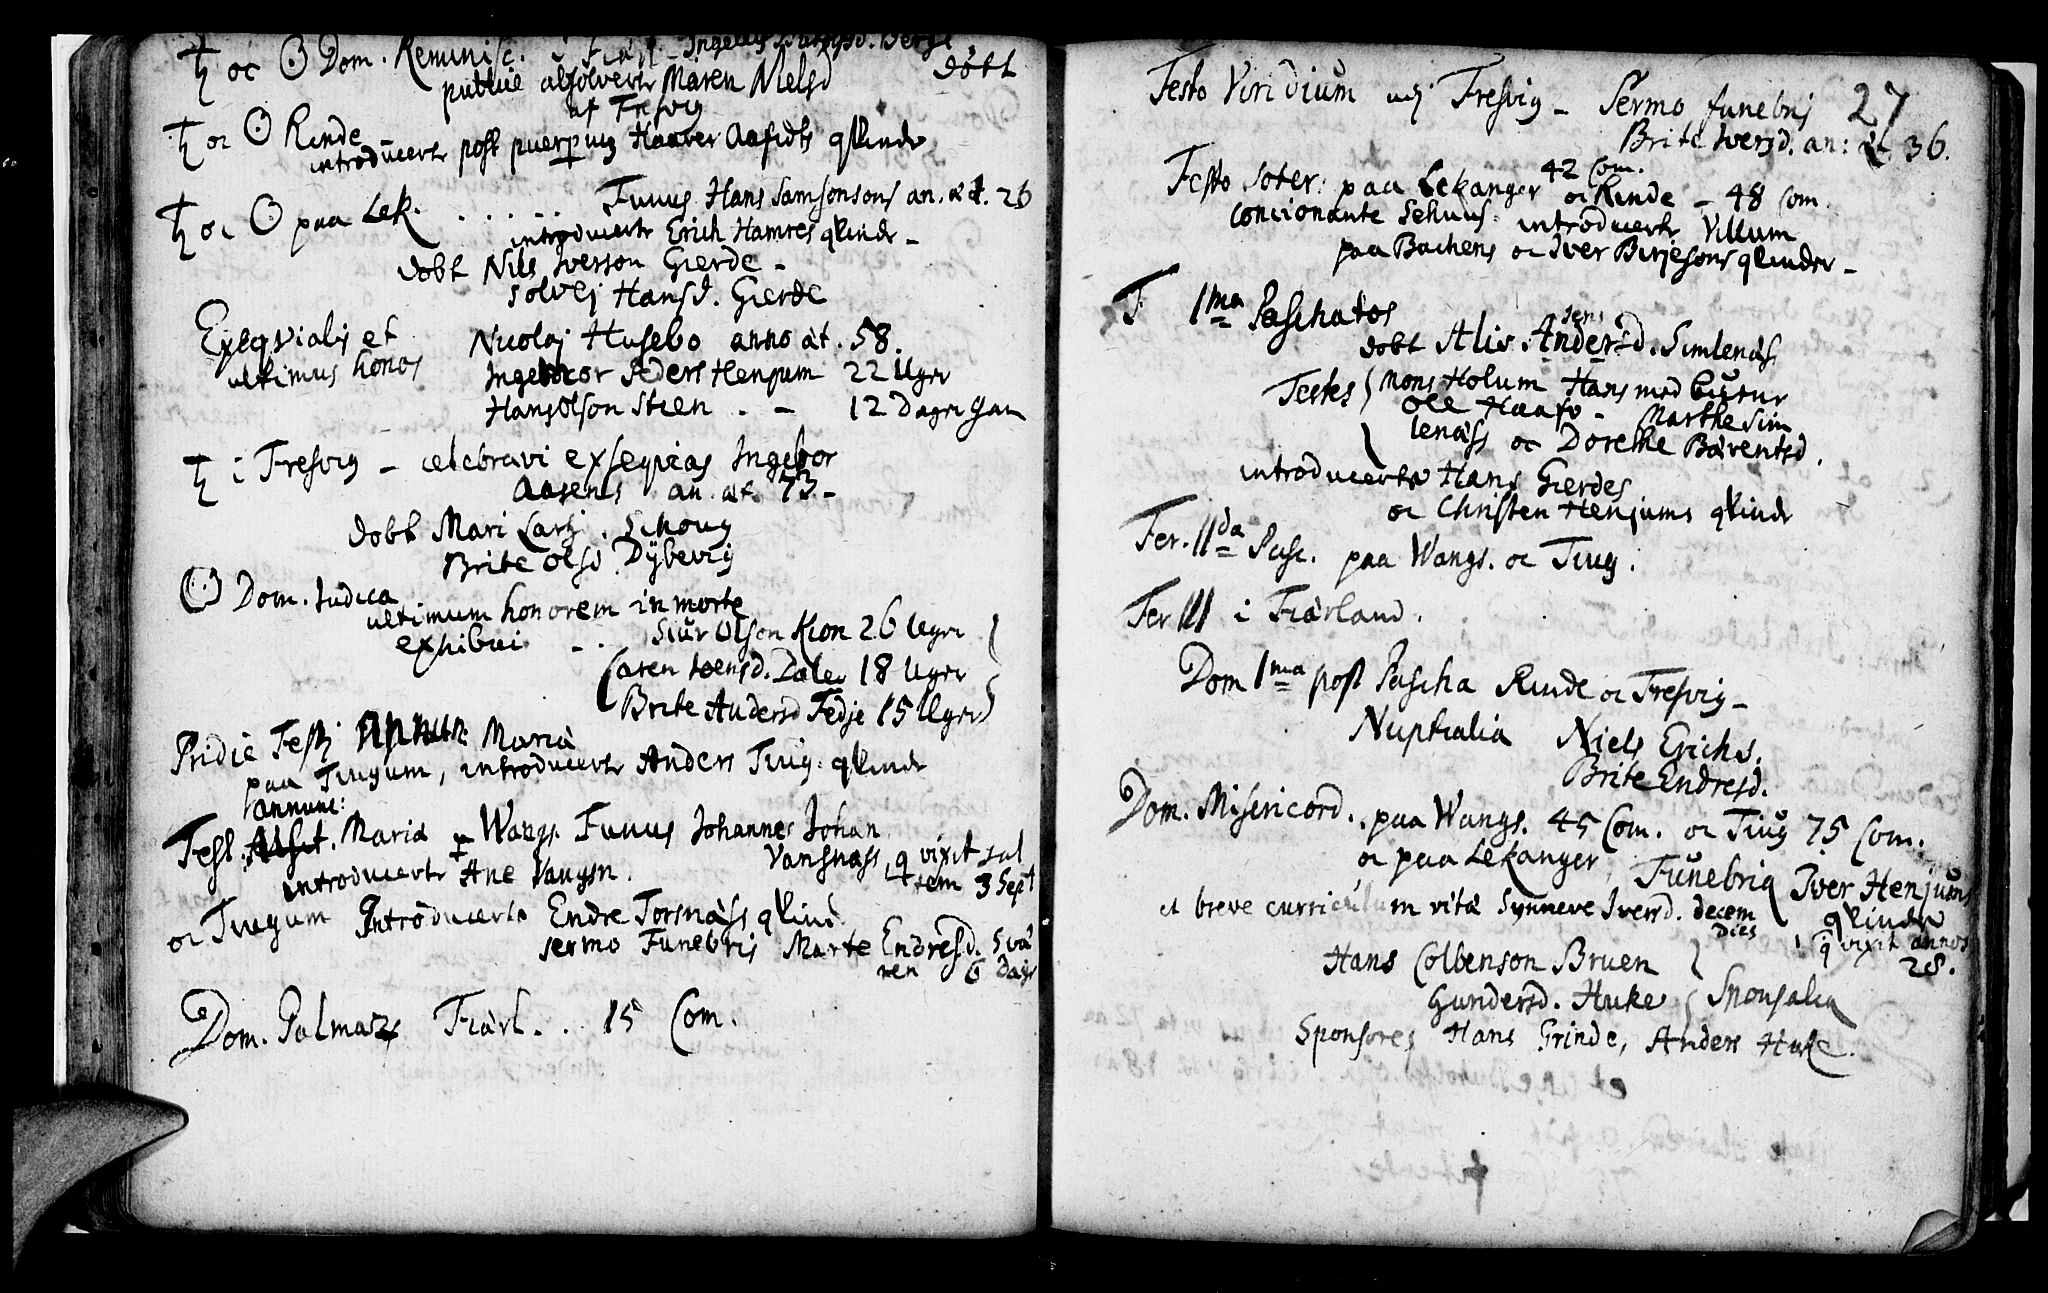 ♄ oc ☉ Dom. Reminisc.
publice absolvert Maren Nielsd döbt
af Fresvig
♄ oc ☉ Rinde
introducerte post puerp Haaver Aafedts qvinde
♄ oc ☉ paa Lek. . . . . . . Funus Hans Samsonsons an. æt. 26
introducerte Erich Hamres qvinde –
döbt Nils Iverson Gierde –
Solvej Hansd. Gierde
Exeqvialis et Nicolaj Husebo anno æt. 58.
ultimus honos Ingeborr Peders Henjum 22 Uger
Hans Olson Stien . – 12 Dager gam
♄ i Fresvig – celebravi exseqvias Ingebor
Aasens an. æt. 73 –
döbt Mari Larsd. Schoug
Brite Olsd. Dybevig
☉ Dom. Judica
ultimum honorem in morte
exhibui . . Siur Olson Kion 26 Uger
Caren Joensd. Dale 18 Uger
Brite Andersd Fedje 15 Uger
Pridie Festj Maria
paa Tiugum, introducerte Anders Tiug. qvinde
annunc:
Fest. Maria p Wangs. Funus Johannes Johan
Vangsnæss, q vixit sal
introducerte Ane Vangsn. tem 3 Sept
oc Tiugum Introducerte Endre Torsnæss qvind
sermo Funebris Marte Endresd. Svæ
ren 6 Dage
Dom. Palmar Fiærl. . 15 Com.
Festo Viridium udj Fresvig – Sermo funebris 27
Brite Iversd. an: æt 36.
42 Com.
Festo Soter: paa Lekanger oc Rinde – 48 Com.
concionante introducerte Villum
paa Bachens oc Iver Birjesons qvinder –
F. 1ma Paschatos
sens
döbt Alis Andersd. Simlenæs.
Testes Mons Holum Hans med
Ole – Marthe Sim
lenæss oc Dorethe Bärentsd.
introducerte Hans Gierdes
oc Christen Henjums qvinde
Fer. IIda Pasc. paa Wangs. oc Tiug.
Fer III i Fiærland.
Dom 1ma post Pascha Rinde oc Fresvig –
Nuptialia Niels Erichs.
Brite Endresd.
Dom. Misericord. . paa Wangs. 45 Com. oc Tiug 75 Com.
oc paa Lekanger, Funebria Iver Henjums
et breve curriculum vitæ Synneve Iversd. decem qvinde
dies q vixit annos
Hans Colbenson Bruen 28.
Gundersd. Huke Sponsalia
Sponsores Hans Grinde, Anders Huke.